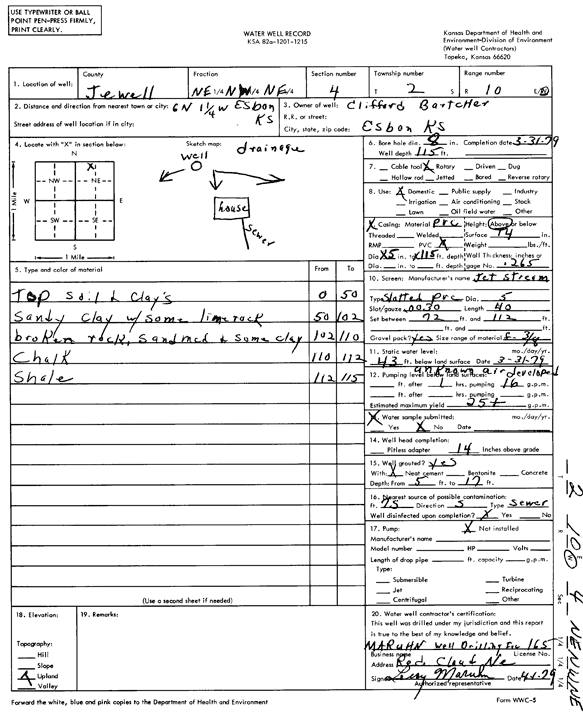 USE TYPEWRITER OR BALL
POINT PEN-PRESS FIRMLY,
PRINT CLEARLY.
WATER WELL RECORD
KSA 82a-1201-1215
Kansas Department of Health and
Environment-Division of Environment
(Water well Contractors)
Topeka, Kansas 66620
1. Location of well: County Jewell Fraction NE 1/4 NW 1/4 NE 1/4 Section number 4 Township number T 2 S Range number R 10 E/W
2. Distance and direction from nearest town or city: 6N 1 1/4 W Esbon KS
Street address of well location if in city:
3. Owner of well: Clifford Bartcher
R.R. or street:
City, state, zip code: Esbon KS
4. Locate with "X" in section below:
N
X
NW NE
W E
SW SE
S
1 Mile
1 Mile
Sketch map:
drainage
well
house
sewer
6. Bore hole dia. 8 in. Completion date 3-31-79
Well depth 115 ft.
7. Cable tool X Rotary Driven Dug
Hollow rod Jetted Bored Reverse rotary
8. Use: X Domestic Public supply Industry
Irrigation Air conditioning Stock
Lawn Oil field water Other
X Casing: Material PVC Height: Above or below
Threaded Welded Surface 14 in.
RMP PVC X Weight lbs./ft.
Dia. X5 in. to X115 ft. depth Wall Thickness: inches or
Dia. in. to ft. depth gage No. .265
5. Type and color of material From To
Top Soil & Clay's 0 50
Sandy Clay w/ some limerock 50 102
broken rock, Sand med & some clay 102 110
Chalk 110 112
Shale 112 115
(Use a second sheet if needed)
10. Screen: Manufacturer's name Jet Stream
Type Slotted PVC Dia. 5
Slot/gauze .00.30 Length 40
Set between 72 ft. and 112 ft.
ft. and ft.
Gravel pack? yes Size range of material 8-3/8
11. Static water level: mo./day/yr.
43 ft. below land surface Date 3-31-79
12. Pumping level below land surface: unknown air developed
ft. after 1 hrs. pumping 16 g.p.m.
ft. after hrs. pumping g.p.m.
Estimated maximum yield 25+ g.p.m.
X Water sample submitted: mo./day/yr.
Yes X No Date
14. Well head completion:
Pitless adapter 14 Inches above grade
15. Well grouted? yes
With: X Neat cement Bentonite Concrete
Depth: From 5 ft. to 17 ft.
16. Nearest source of possible contamination:
ft. 75 Direction S Type Sewer
Well disinfected upon completion? X Yes No
17. Pump: X Not installed
Manufacturer's name
Model number HP Volts
Length of drop pipe ft. capacity g.p.m.
Type:
Submersible Turbine
Jet Reciprocating
Centrifugal Other
18. Elevation:
Topography:
Hill
Slope
X Upland
Valley
19. Remarks:
20. Water well contractor's certification:
This well was drilled under my jurisdiction and this report
is true to the best of my knowledge and belief.
MARUHN Well Drilling Inc 165
Business name License No.
Address Red Cloud Ne
Signed Leroy Maruhn Date 4-1-79
Authorized representative
Forward the white, blue and pink copies to the Department of Health and Environment
Form WWC-5
T 2 R 10 E W Sec 4 NENWNE
1/4 1/4 1/4